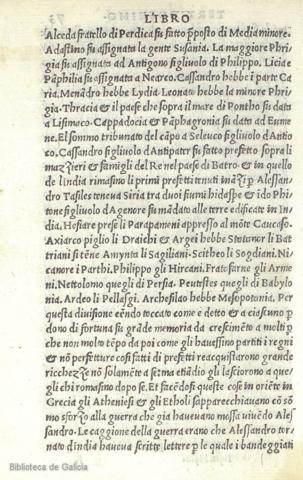 LIBRO
Alceda fratello di Perdica fu fatto p̄posto di Media minore.
Adastino fu assignata la gente Susania. La maggiore Phri
gia fu assignata ad Antigono figliuolo di Philippo. Licia e
Pāphilia fu assignata a Nearco. Cassandro hebbe i parte Ca
ria. Menādro hebbe Lydia. Leonato hebbe la minore Phri
gia. Thracia & il paese che sopra il mare di Pontho fu data a
Lisimaco. Cappadocia & Paphagronia fu data ad Eume
ne. El sommo tribunato del cāpo a Seleuco figliuolo dAntio
co. Cassandro figliuolo dAntipater fu fatto prefetto sopra li
maz̄zieri & famigli del Re nel paese di Batro. & in quello
de lindia rimasino li primi prefetti tenuti Alessan
dro Tasiles teneua Siria tra duoi fiumi hidaspe & ido Phi
tone figliuolo dAgenore fu mādato alle terre edificate in In
dia. Hefiare prese li Parapameni appresso al mōte Caucaso.
Axiarco piglio li Draichi & Argei hebbe Stotanor li Bat
triani si tēne Amynta li Sagiliani. Scitheo li Sogdiani. Ni
canore i Parthi. Philippo gli Hircani. Fratafarne gli Arme
ni. Nettolomo quegli di Persia. Peutestes quegli di Babylo
nia. Ardeo li Pellasgi. Archesilao hebbe Mesopotonia. Per
questa diuisione eēndo toccato come e detto & a ciascuno p
dono di fortuna fu grāde memoria da crescimēto a molti p
che non molto tēpo da poi come gli hauessino partiti i regni
& nō perfetture cosi fatti di prefetti reacquistarono grande
ricchez̄z̄e nō solamēte a se ma etiādio gli lasciorono a que
gli chi romasino dopo se. Et facēdosi queste cose in oriēte in
Grecia gli Atheniesi & gli Etholi sapparecchiauano cō sō
mo sforz̄o alla guerra che gia haueuano mossa viuēdo Ales
sandro. Le caggione della guerra erano che Alessandro tor
nato dindia haueua scritte lettere p le quale i bandeggiati
Biblioteca de Galicia